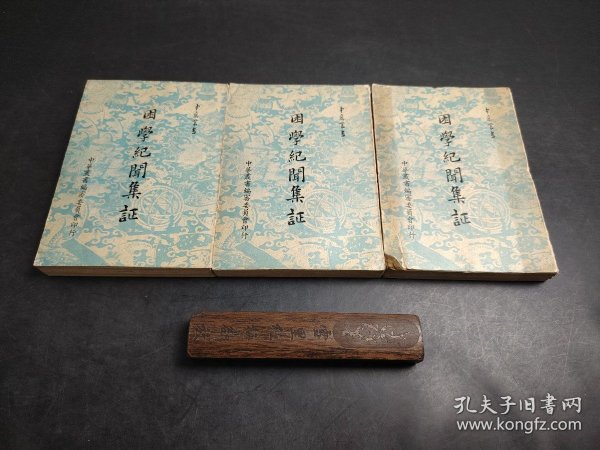 中華叢書
困學紀聞集証
中華叢書編審委員會印行
中華叢書
困學紀聞集証
中華叢書編審委員會印行
中華叢書
困學紀聞集証
中華叢書編審委員會印行
孔夫子旧书网
www.kongfz.com